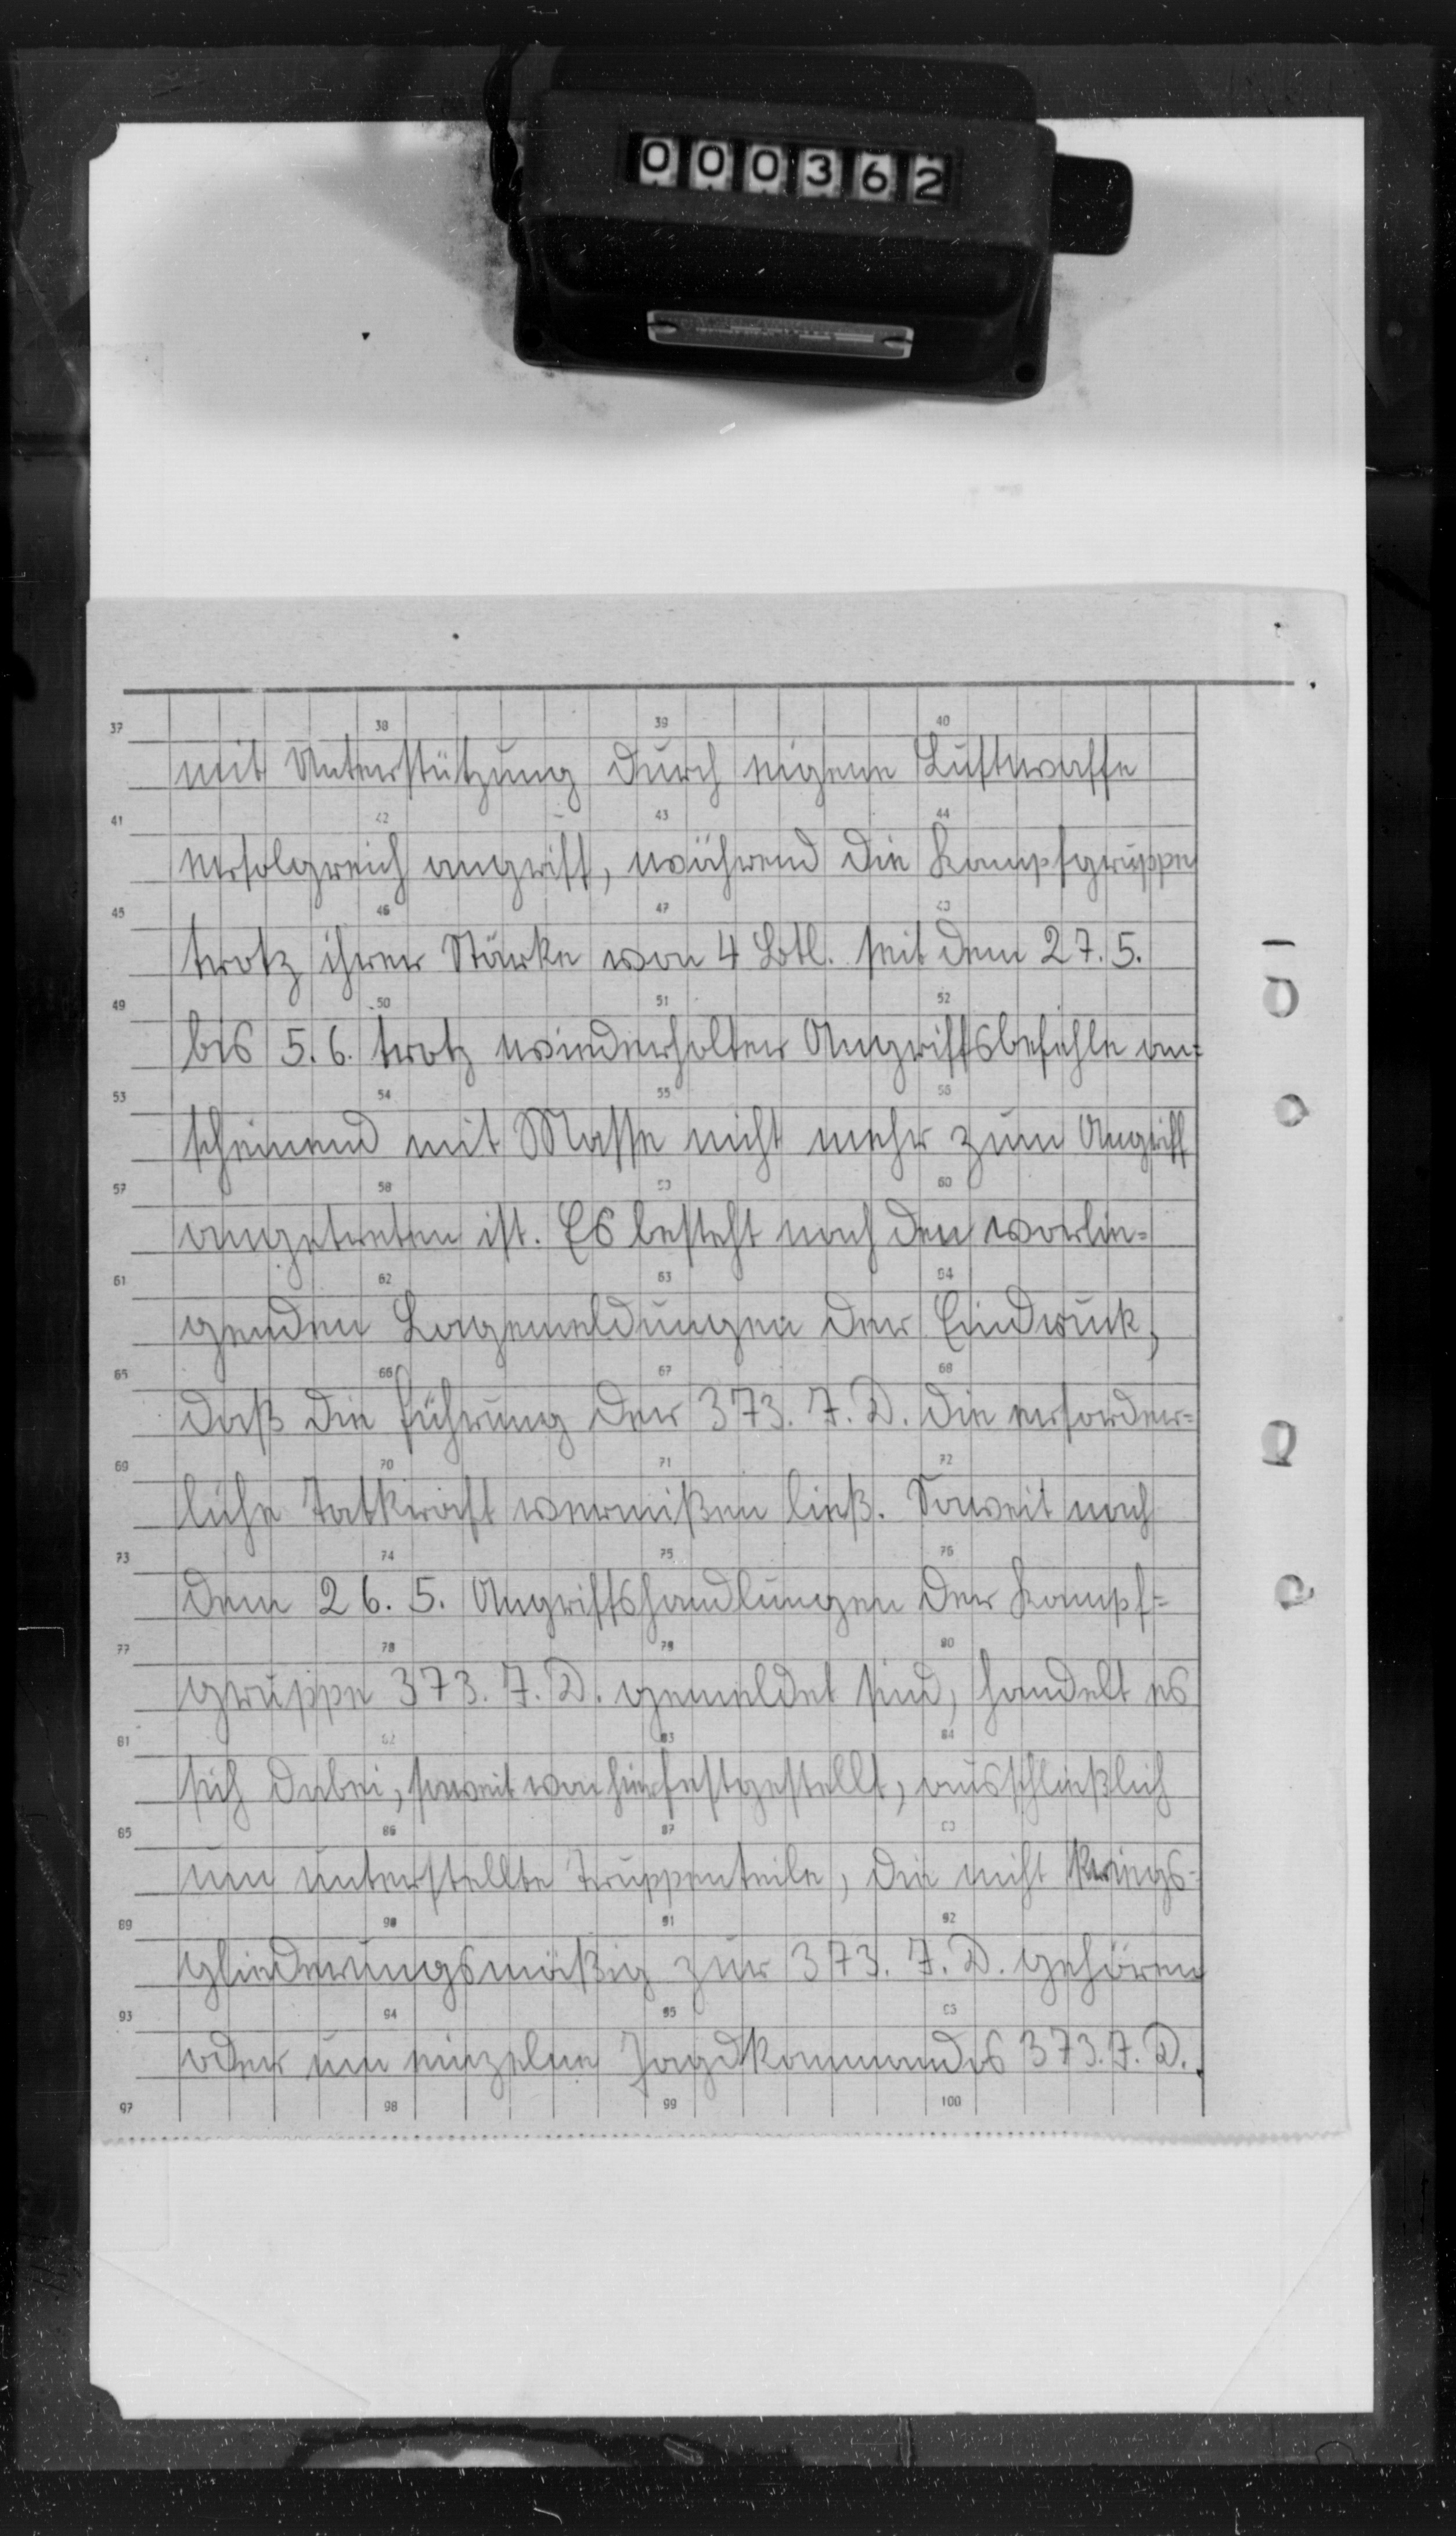 000362
37 38 39 40
mit Unterstützung durch eigene Luftwaffe
41 42 43 44
erfolgreich angriff, während die Kampfgruppe
45 46 47 48
trotz ihrer Stärke von 4 Btl. seit dem 27.5.
49 50 51 52
bis 5.6. trotz wiederholter Angriffsbefehle an=
53 54 55 56
scheinend mit Masse nicht mehr zum Angriff
57 58 59 60
angetreten ist. Es besteht nach den vorlie=
61 62 63 64
genden Lagemeldungen der Eindruck,
65 66 67 68
daß die Führung der 373. J. D. die erforder=
69 70 71 72
liche Tatkraft vermißen ließ. Soweit nach
73 74 75 76
dem 26. 5. Angriffshandlungen der Kampf=
77 78 79 80
gruppe 373. J. D. gemeldet sind, handelt es
81 82 83 84
sich dabei, soweit von hier festgestellt, ausschließlich
85 86 87 88
um unterstellte Truppenteile, die nicht kriegs-
89 90 91 92
gliederungsmäßig zur 373. J. D. gehören
93 94 95 96
oder um einzelne Jagdkommandos 373. J. D.
97 98 99 100